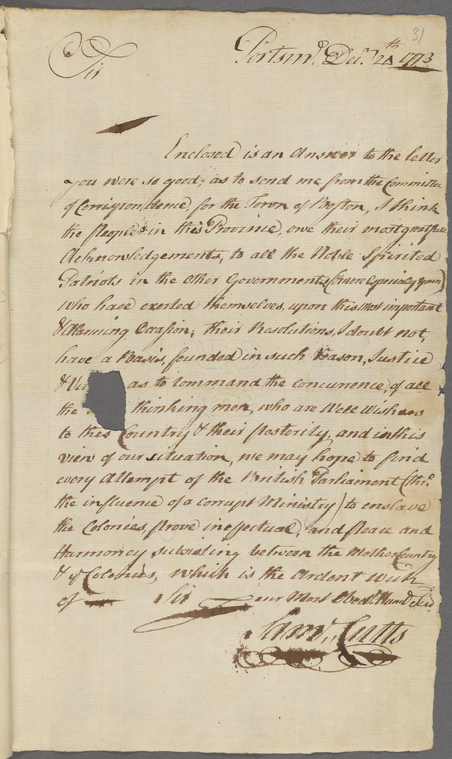 31
Portsmo. Decr. 21th 1773
Sir
Enclosed is an Answer to the letter
you were so good, as to send me from the Committee
of Correspondence, for the Town of Boston, I think
the People in this Province, owe their most gratefull
Acknowledgements, to all the Noble Spirited
Patriots in the other Governments (& more Especialy yours)
who have exerted themselves, upon this most important
& Alarming Occasion, their Resolutions, I doubt not,
have a Basis, founded in such Reason, Justice
& as to command the concurence, of all
the thinking men, who are Well Wishers
to this Country & their Posterity, and in this
view of our situation, we may hope to find
every Attempt of the British Parliament (thro.
the influence of a corrupt Ministry) to enslave
the Colonies, prove ineffectual, and Peace and
Harmoney subsisting between the Mother Country
& ye Colonies, which is the Ardent wish
of Sir your Most Obedt. Humle Ser.
Saml. Cutts